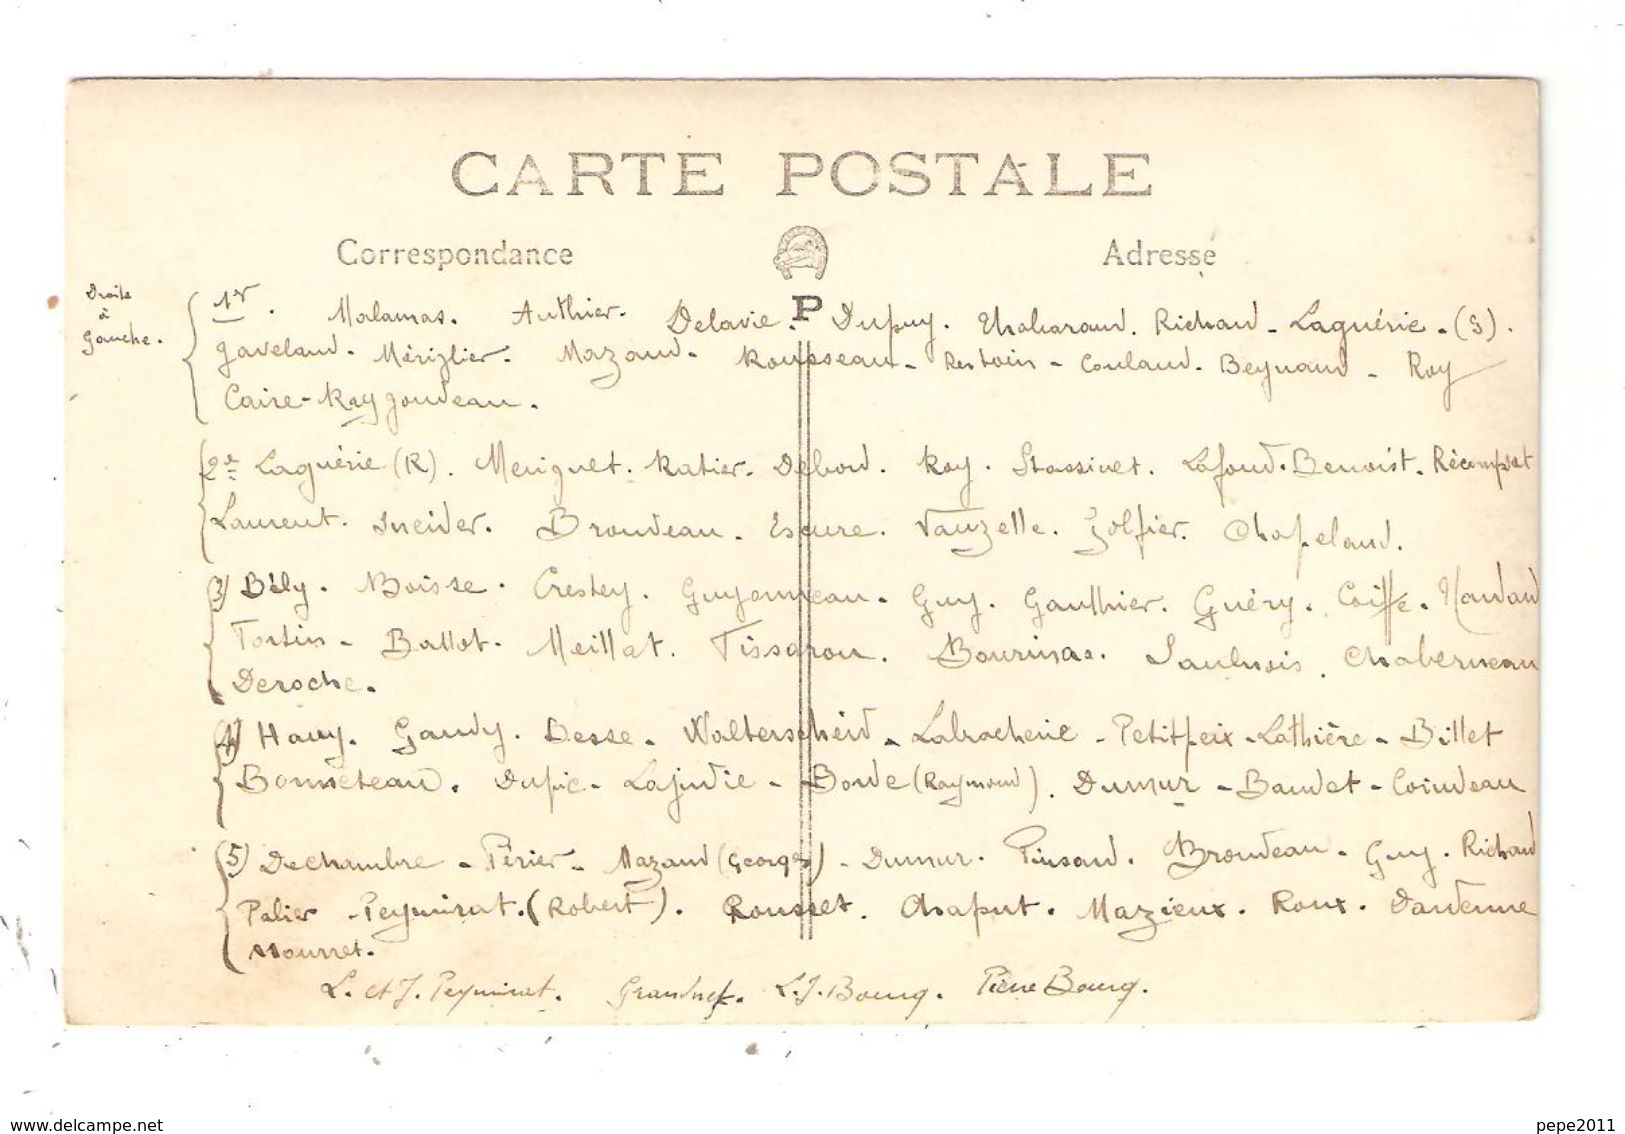 CARTE POSTALE
Correspondance
Adresse
P
Droite
à
gauche.
1er. Malamas. Authier. Delavie. Dupuy. Chabaraud. Richard - Laguérie - (S).
Javelaud. Mériglier. Mazaud. Rousseau - Restoin - Coulaud. Beynaud - Roy
Caire - Raygondeau.
2e Laguérie (R). Meriguet. Ratier. Debord. Roy. Stassinet. Lafond. Benoist. Récompsat
Laurent. Sneider. Broudeau. Escure. Vauzelle. Golfier. Chapelaud.
3) Bély. Boisse. Crestey. Guyonneau. Guy. Gauthier. Guéry. Coiffe. Nardaud
Tortin - Ballot. Meillat. Tissaron. Bourinas. Saulnois. Chaberneau
Deroche.
4) Hauy. Gaudy. Desse. Walterscheid - Labracherie - Petitpeix - Lathière - Billet
Bonneteau. Dupic - Lajudie - Borde (Raymond). Dumur - Baudet - Coindeau
5) Dechambre - Périer - Mazaud (Georges) - Dumur. Pinsaud. Broudeau - Guy. Richard
Palier - Peymirat. (Robert). Rousset. Chaput. Mazieux. Roux. Dardenne
Mourret.
L. et J. Peymirat. L. J. Bourg. Pierre Bourg.
www.delcampe.net
pepe2011